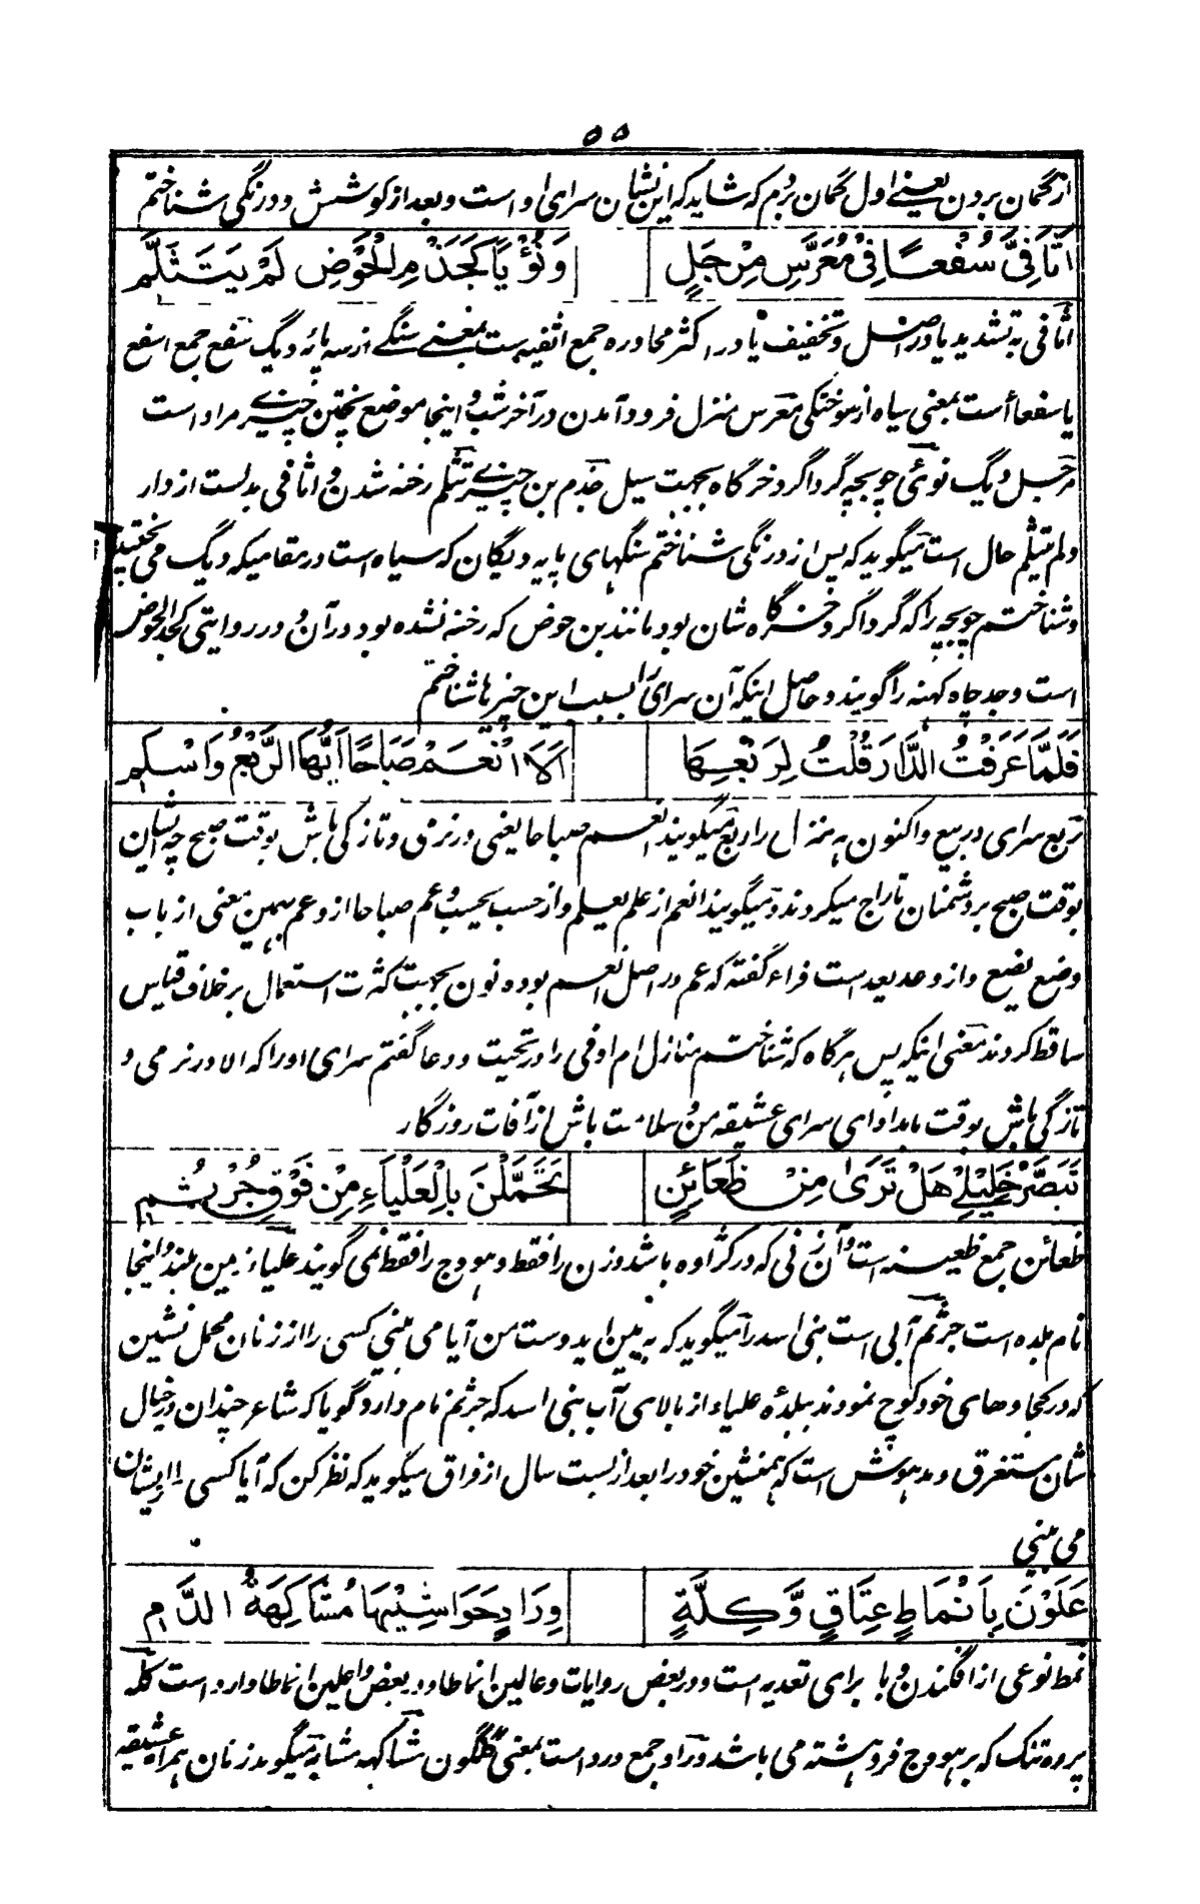 ۵۵
از گمان بردن یعنے اول گمان بردم که شاید که این نشان سرای او است و بعد از کوشش و درنگی شناختم
اَثَافِیَّ سُفْعًا فِیْ مُعَرَّسِ مِرْجَلٍ وَنُؤْیًا کَجَذْمِ الْحَوْضِ لَمْ یَتَثَلَّمِ
اثافی به تشدید یا در اصل و تخفیف یا در اکثر محاوره جمع اثفیه است بمعنے سنگے از سه پایه دیگ سفع جمع اسفع
یا سفعا است بمعنی سیاه از سوختگی معرس منزل فرود آمدن در آخر شب و اینجا موضع پختن چیزے مراد است
مرجل دیگ نوئی جوبچه گرداگرد خرگاه بجهت سیل جذم بن چیزے تثلم رخنه شدن و اثافی بدلست از دار
و لم یتثلم حال است میگوید که پس از درنگی شناختم سنگهای پایه دیگان که سیاه است در مقامیکه دیگ می پختند
و شناختم جوبچه را که گرداگرد خرگاه شان بود مانند بن حوض که رخنه نشده بود در آن و در روایتی کجد الحوض
است و جد چاه کهنه را گویند و حاصل اینکه آن سرای را بسبب این چیزها شناختم
فَلَمَّا عَرَفْتُ الدَّارَ قُلْتُ لِرَبْعِهَا اَلَا انْعَمْ صَبَاحًا اَیُّهَا الرَّبْعُ وَاسْلَمِ
ربع سرای در ربیع و اکنون هر منزل را ربع میگویند انعم صباحا یعنی در نرمی و تازگی باش بوقت صبح چه ایشان
بوقت صبح بر دشمنان تاراج میکردند و میگویند انعم از علم یعلم و از حسب یحسب و عم صباحا از وعم بهمین معنی از باب
وضع یضع و از وعد یعد است فراء گفته که عم در اصل انعم بوده نون بجهت کثرت استعمال بر خلاف قیاس
ساقط کردند معنی اینکه پس هرگاه که شناختم منازل ام اوفی را در تحیت و دعا گفتم سرای او را که الا در نرمی و
تازگی باش بوقت بامداد ای سرای عشیقه من و سلامت باش از آفات روزگار
تَبَصَّرْ خَلِیْلِیْ هَلْ تَرَیٰ مِنْ ظَعَائِنٍ تَحَمَّلْنَ بِالْعَلْیَاءِ مِنْ فَوْقِ جُرْثُمِ
ظعائن جمع ظعینه است و آن زنی که در کژاوه باشد و زن را فقط و هودج را فقط نمی گویند علیاء زمین بلند و اینجا
نام بلده است جرثم آبی است بنی اسد را میگوید که به بین اید وست من آیا می بینی کسی را از زنان محمل نشین
که در کجاوهای خود کوچ نمودند ببلده علیاء از بالای آب بنی اسد که جرثم نام دارد گویا که شاعر چندان در خیال
شان مستغرق و مدهوش است که همنشین خود را بعد از بست سال از فراق میگوید که نظر کن که آیا کسی را از ایشان
می بینی
عَلَوْنَ بِاَنْمَاطٍ عِتَاقٍ وَّکِلَّةٍ وِرَادٍ حَوَاشِیْهَا مُشَاکِهَةُ الدَّمِ
نمط نوعی از افگندن و با برای تعدیه است و در بعض روایات و عالین انماطا و در بعض و اعلین انماطا وارد است کله
پرده تنک که بر هودج فروهشته می باشد وراد جمع ورد است بمعنی گلگون مشاکهه مشابه میگوید زنان همراه عشیقه